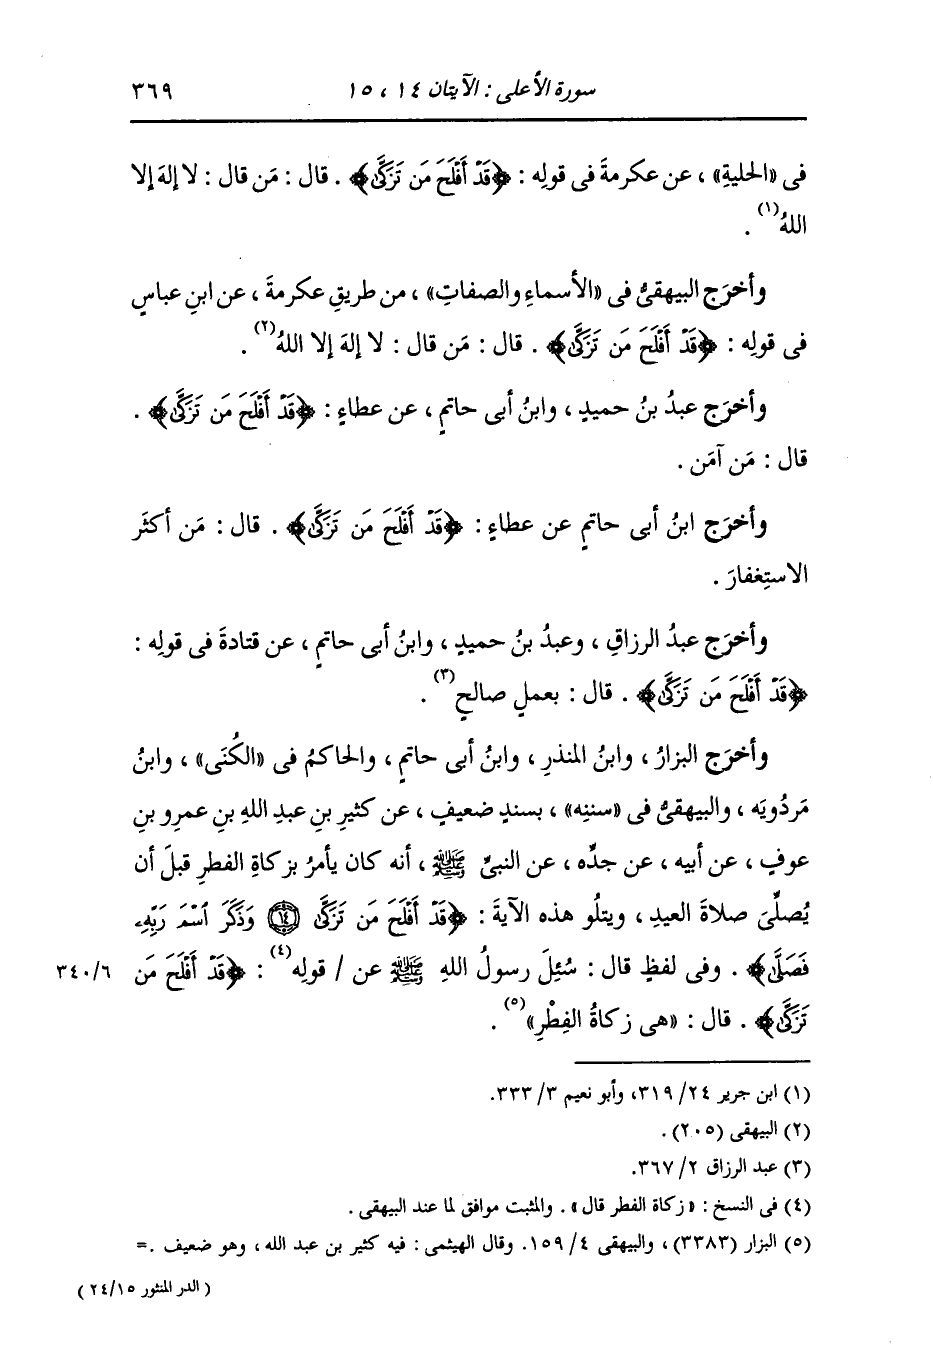 سورة الأعلى : الآيتان ١٤ ، ١٥ ٣٦٩
فى «الحليةِ» ، عن عكرمةَ فى قولِه : ﴿قَدْ أَفْلَحَ مَن تَزَكَّىٰ﴾ . قال : مَن قال : لا إلهَ إلا
اللهُ(١) .
وأخرَج البيهقىُّ فى «الأسماءِ والصفاتِ» ، من طريقِ عكرمةَ ، عن ابنِ عباسٍ
فى قولِه : ﴿قَدْ أَفْلَحَ مَن تَزَكَّىٰ﴾ . قال : مَن قال : لا إلهَ إلا اللهُ(٢) .
وأخرَج عبدُ بنُ حميدٍ ، وابنُ أبى حاتمٍ ، عن عطاءٍ : ﴿قَدْ أَفْلَحَ مَن تَزَكَّىٰ﴾ .
قال : مَن آمَن .
وأخرَج ابنُ أبى حاتمٍ عن عطاءٍ : ﴿قَدْ أَفْلَحَ مَن تَزَكَّىٰ﴾ . قال : مَن أكثَر
الاستِغفارَ .
وأخرَج عبدُ الرزاقِ ، وعبدُ بنُ حميدٍ ، وابنُ أبى حاتمٍ ، عن قتادةَ فى قولِه :
﴿قَدْ أَفْلَحَ مَن تَزَكَّىٰ﴾ . قال : بعملٍ صالحٍ(٣) .
وأخرَج البزارُ ، وابنُ المنذرِ ، وابنُ أبى حاتمٍ ، والحاكمُ فى «الكُنَى» ، وابنُ
مَردُويَه ، والبيهقىُّ فى «سننِه» ، بسندٍ ضعيفٍ ، عن كثيرِ بنِ عبدِ اللهِ بنِ عمرِو بنِ
عوفٍ ، عن أبيه ، عن جدِّه ، عن النبىِّ ﷺ ، أنه كان يأمرُ بزكاةِ الفطرِ قبلَ أن
يُصلِّىَ صلاةَ العيدِ ، ويتلُو هذه الآيةَ : ﴿قَدْ أَفْلَحَ مَن تَزَكَّىٰ ۝١٤ وَذَكَرَ ٱسْمَ رَبِّهِۦ
فَصَلَّىٰ﴾ . وفى لفظٍ قال : سُئِلَ رسولُ اللهِ ﷺ عن / قولِه(٤) : ﴿قَدْ أَفْلَحَ مَن ٣٤٠/٦
تَزَكَّىٰ﴾ . قال : «هى زكاةُ الفِطْرِ»(٥) .
(١) ابن جرير ٢٤/ ٣١٩، وأبو نعيم ٣/ ٣٣٣.
(٢) البيهقى (٢٠٥) .
(٣) عبد الرزاق ٢/ ٣٦٧.
(٤) فى النسخ : «زكاة الفطر قال» . والمثبت موافق لما عند البيهقى .
(٥) البزار (٣٣٨٣) ، والبيهقى ٤/ ١٥٩. وقال الهيثمى : فيه كثير بن عبد الله ، وهو ضعيف .=
( الدر المنثور ٢٤/١٥ )